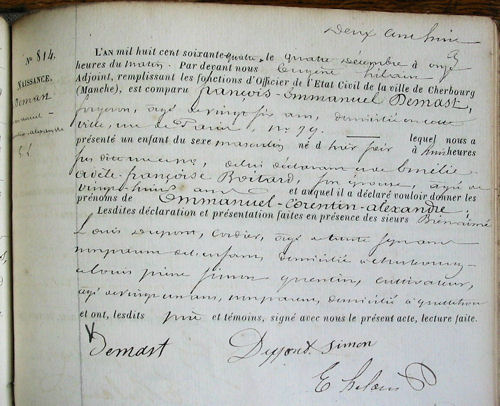 Deux cent huit
N.º 814.
NAISSANCE.
Demast
emmanuel-
corentin-alexandre
L'AN mil huit cent soixante-quatre, le quatre Décembre à onze
heures du matin. Par devant nous Eugène
Adjoint, remplissant les fonctions d'Officier de l'Etat Civil de la ville de Cherbourg
(Manche), est comparu françois-Emmanuel Demast,
forgeron, âgé de vingt six ans, domicilié en cette
ville, rue de Paris, N.º 79, lequel nous a
présenté un enfant du sexe masculin né d'hier soir à heures
en son domicile, de lui déclarant et de Emélie
adèle-françoise Boitard, son épouse, âgée de
vingt-huit ans et auquel il a déclaré vouloir donner les
prénoms de Emmanuel-Corentin-alexandre,
Lesdites déclaration et présentation faites en présence des sieurs Bienaimé
Louis Dupont, Cordier, âgé de trente ans
non parent de l'enfant, domicilié à Cherbourg-
et Louis pierre Simon quentin, cultivateur,
âgé de vingt un ans, non parent, domicilié à
et ont, lesdits père et témoins, signé avec nous le présent acte, lecture faite.
Demast Dupont Simon